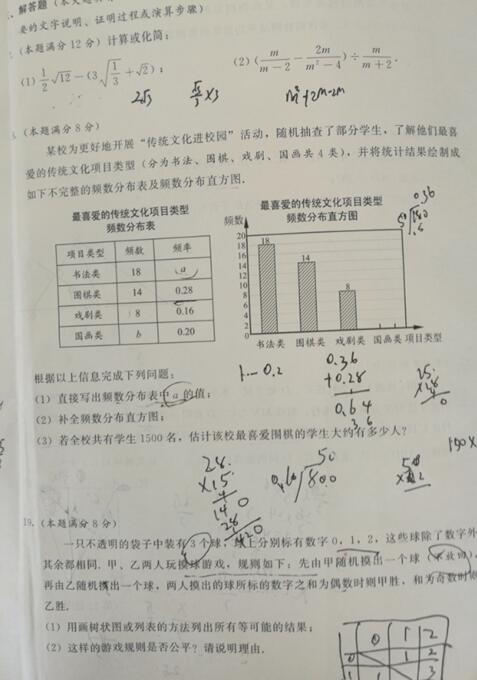 解答题
要的文字说明、证明过程或演算步骤)
(本题满分 12 分) 计算或化简:
(1) 1/2 √12 − (3√(1/3) + √2); (2) (m/(m−2) − 2m/(m²−4)) ÷ m/(m+2).
2√3
(本题满分 8 分)
某校为更好地开展“传统文化进校园”活动, 随机抽查了部分学生, 了解他们最喜
爱的传统文化项目类型 (分为书法、围棋、戏剧、国画共 4 类), 并将统计结果绘制成
如下不完整的频数分布表及频数分布直方图.
最喜爱的传统文化项目类型
频数分布表
项目类型 频数 频率
书法类 18 a
围棋类 14 0.28
戏剧类 8 0.16
国画类 b 0.20
最喜爱的传统文化项目类型
频数分布直方图
频数
20
18
16
14
12
10
8
6
4
2
0
18
14
8
书法类 围棋类 戏剧类 国画类 项目类型
0.36
根据以上信息完成下列问题:
1-0.2
0.36
+0.28
0.64
(1) 直接写出频数分布表中 a 的值;
(2) 补全频数分布直方图;
(3) 若全校共有学生 1500 名, 估计该校最喜爱围棋的学生大约有多少人?
28
×15
50
800
420
19. (本题满分 8 分)
一只不透明的袋子中装有 3 个球, 球上分别标有数字 0, 1, 2, 这些球除了数字外
其余都相同. 甲、乙两人玩摸球游戏, 规则如下: 先由甲随机摸出一个球 (不放回),
再由乙随机摸出一个球, 两人摸出的球所标的数字之和为偶数时则甲胜, 和为奇数时则
乙胜.
(1) 用画树状图或列表的方法列出所有等可能的结果;
(2) 这样的游戏规则是否公平? 请说明理由.
0 1 2
0 1 2
1 1 3